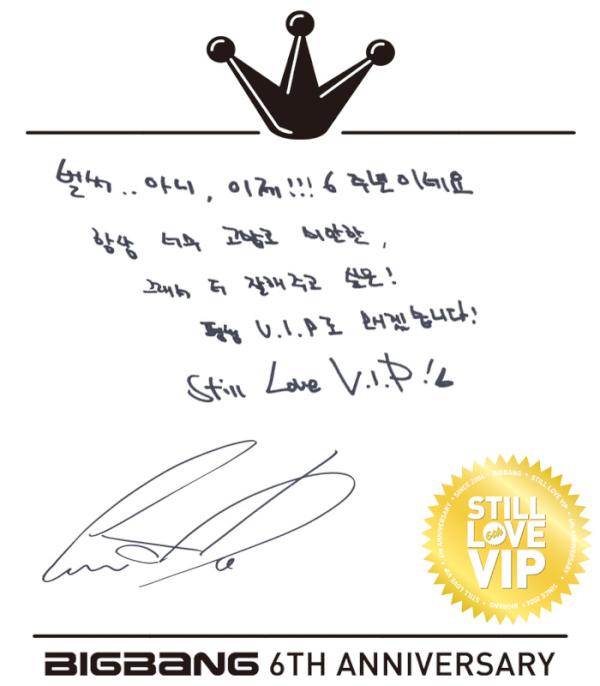 벌써.. 아니, 이제!!! 6 주년이네요
항상 너무 고맙고 미안한,
그래서 더 잘해주고 싶은!
평생 V.I.P로 모시겠습니다!
Still Love V.I.P!
STILL
LOVE
6th
VIP
SINCE 2006 • BIGBANG • STILL LOVE VIP • 6TH ANNIVERSARY • SINCE 2006 • BIGBANG • STILL LOVE VIP • 6TH ANNIVERSARY
BIGBANG 6TH ANNIVERSARY